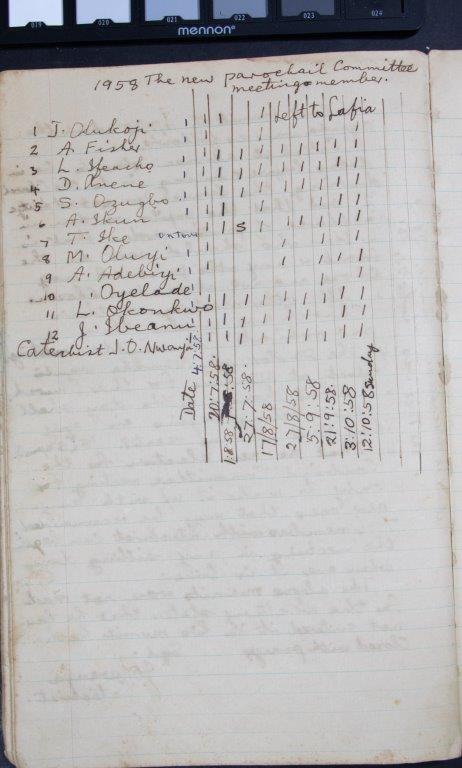 019 020 021 022 023 024
mennon
1958 The new parochail Committee
meeting member.
Left to Lafia
1 J. Olukoji
2 A. Fisher
3 L.
4 D. Anene
5 S. Ozugbo
6 A. Ikun
7 T. Ike on tour
8 M. Oluyi
9 A. Adebiyi
10 . Oyelade
11 L. Okonkwo
12 J. Ibeanu
Catechist J. O.
Date 4:7:58
20:7:58.
1:8:58
27:7:58.
17/8/58
27/8/58
5:9:58
21:9:58.
3:10:58
12:10:58 Sunday